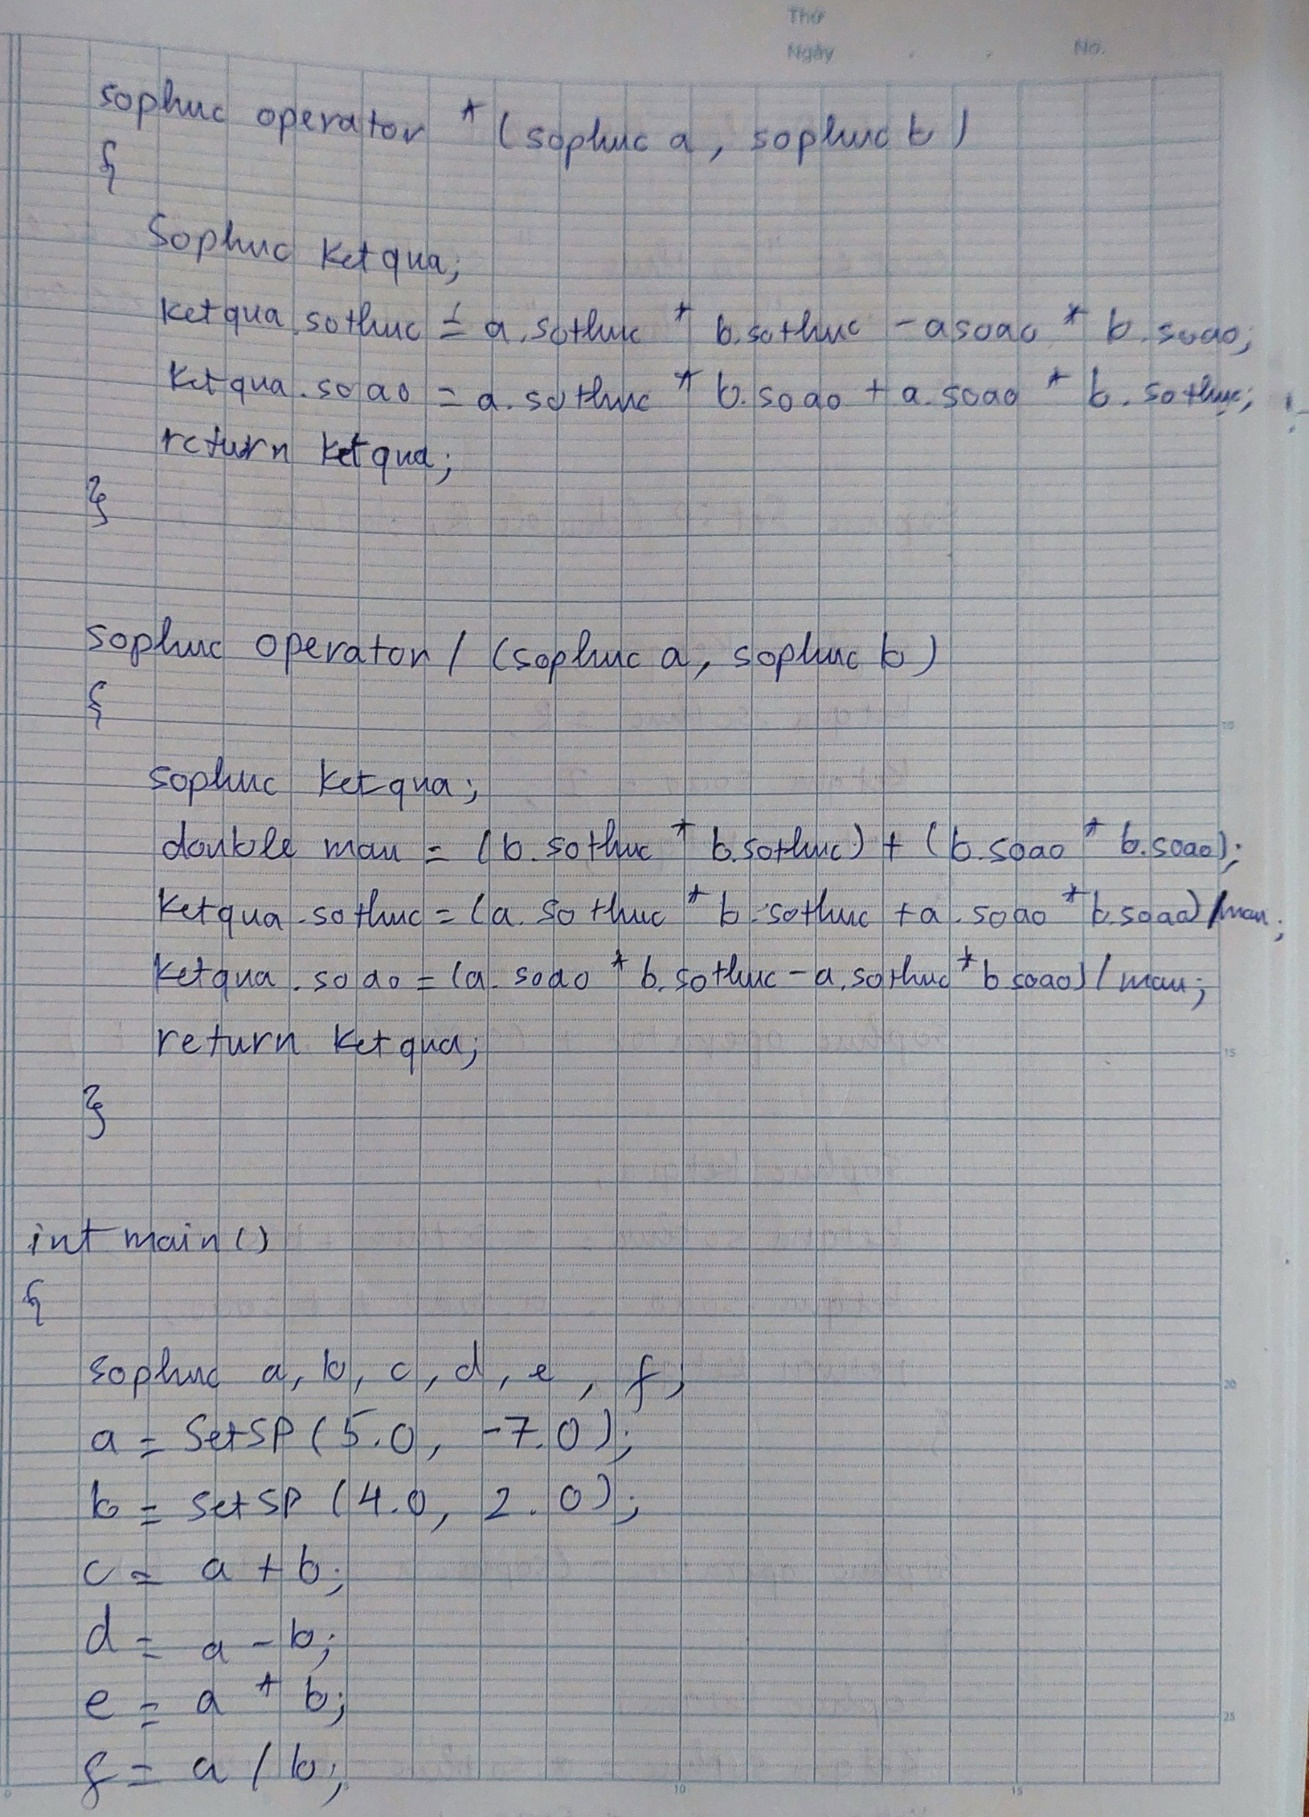 Thứ
Ngày . . No.
sophuc operator * (sophuc a, sophuc b)
{
Sophuc ketqua;
ketqua.sothuc = a.sothuc * b.sothuc - a soao * b.soao;
ketqua.soao = a.sothuc * b.soao + a.soao * b.sothuc;
return ketqua;
}
sophuc operator / (sophuc a, sophuc b)
{
sophuc ketqua;
double mau = (b.sothuc * b.sothuc) + (b.soao * b.soao);
ketqua.sothuc = (a.sothuc * b.sothuc + a.soao * b.soao) / mau;
ketqua.soao = (a.soao * b.sothuc - a.sothuc * b soao) / mau;
return ketqua;
}
int main()
{
sophuc a, b, c, d, e, f;
a = SetSP (5.0, -7.0);
b = SetSP (4.0, 2.0);
c = a + b;
d = a - b;
e = a * b;
f = a / b;